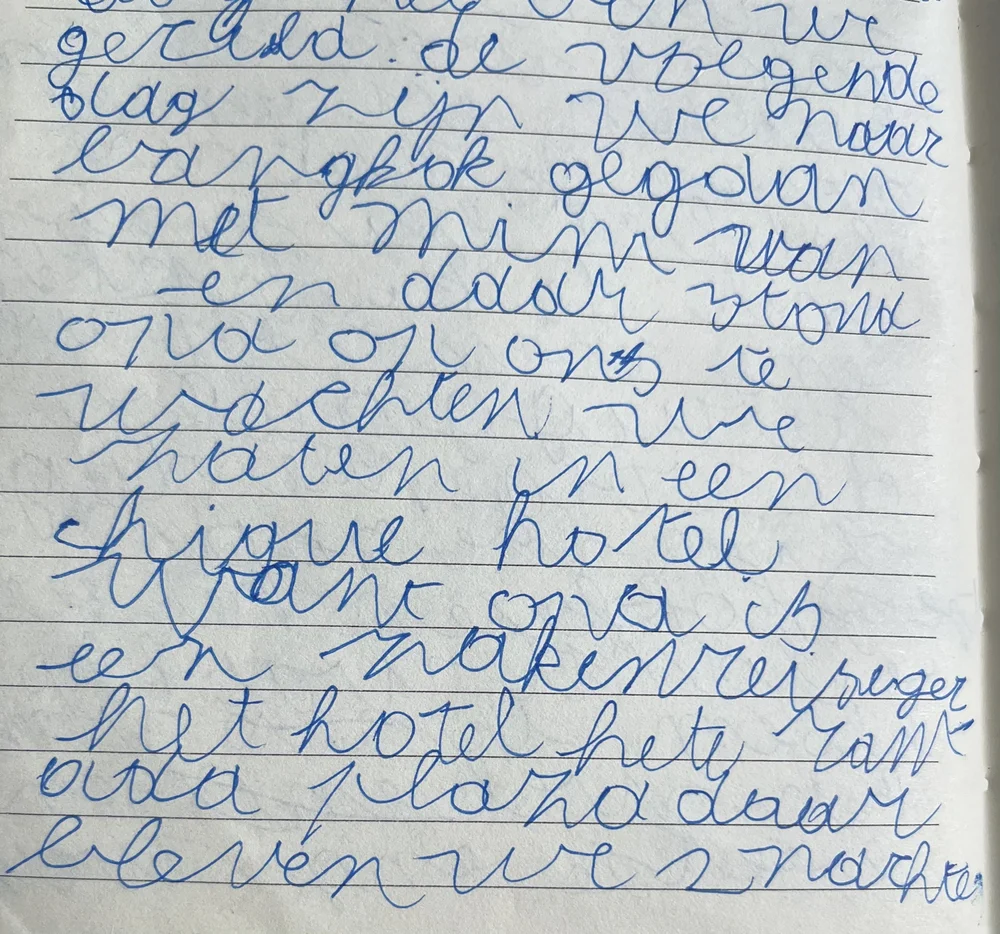 we
geruild. de volgende
dag zijn we naar
bangkok gegaan
met mini van
en daar stond
opa op ons te
wachten. we
zaten in een
chique hotel
want opa is
een zakenreiziger
het hotel hete
plaza daar
bleven we 2 nachten